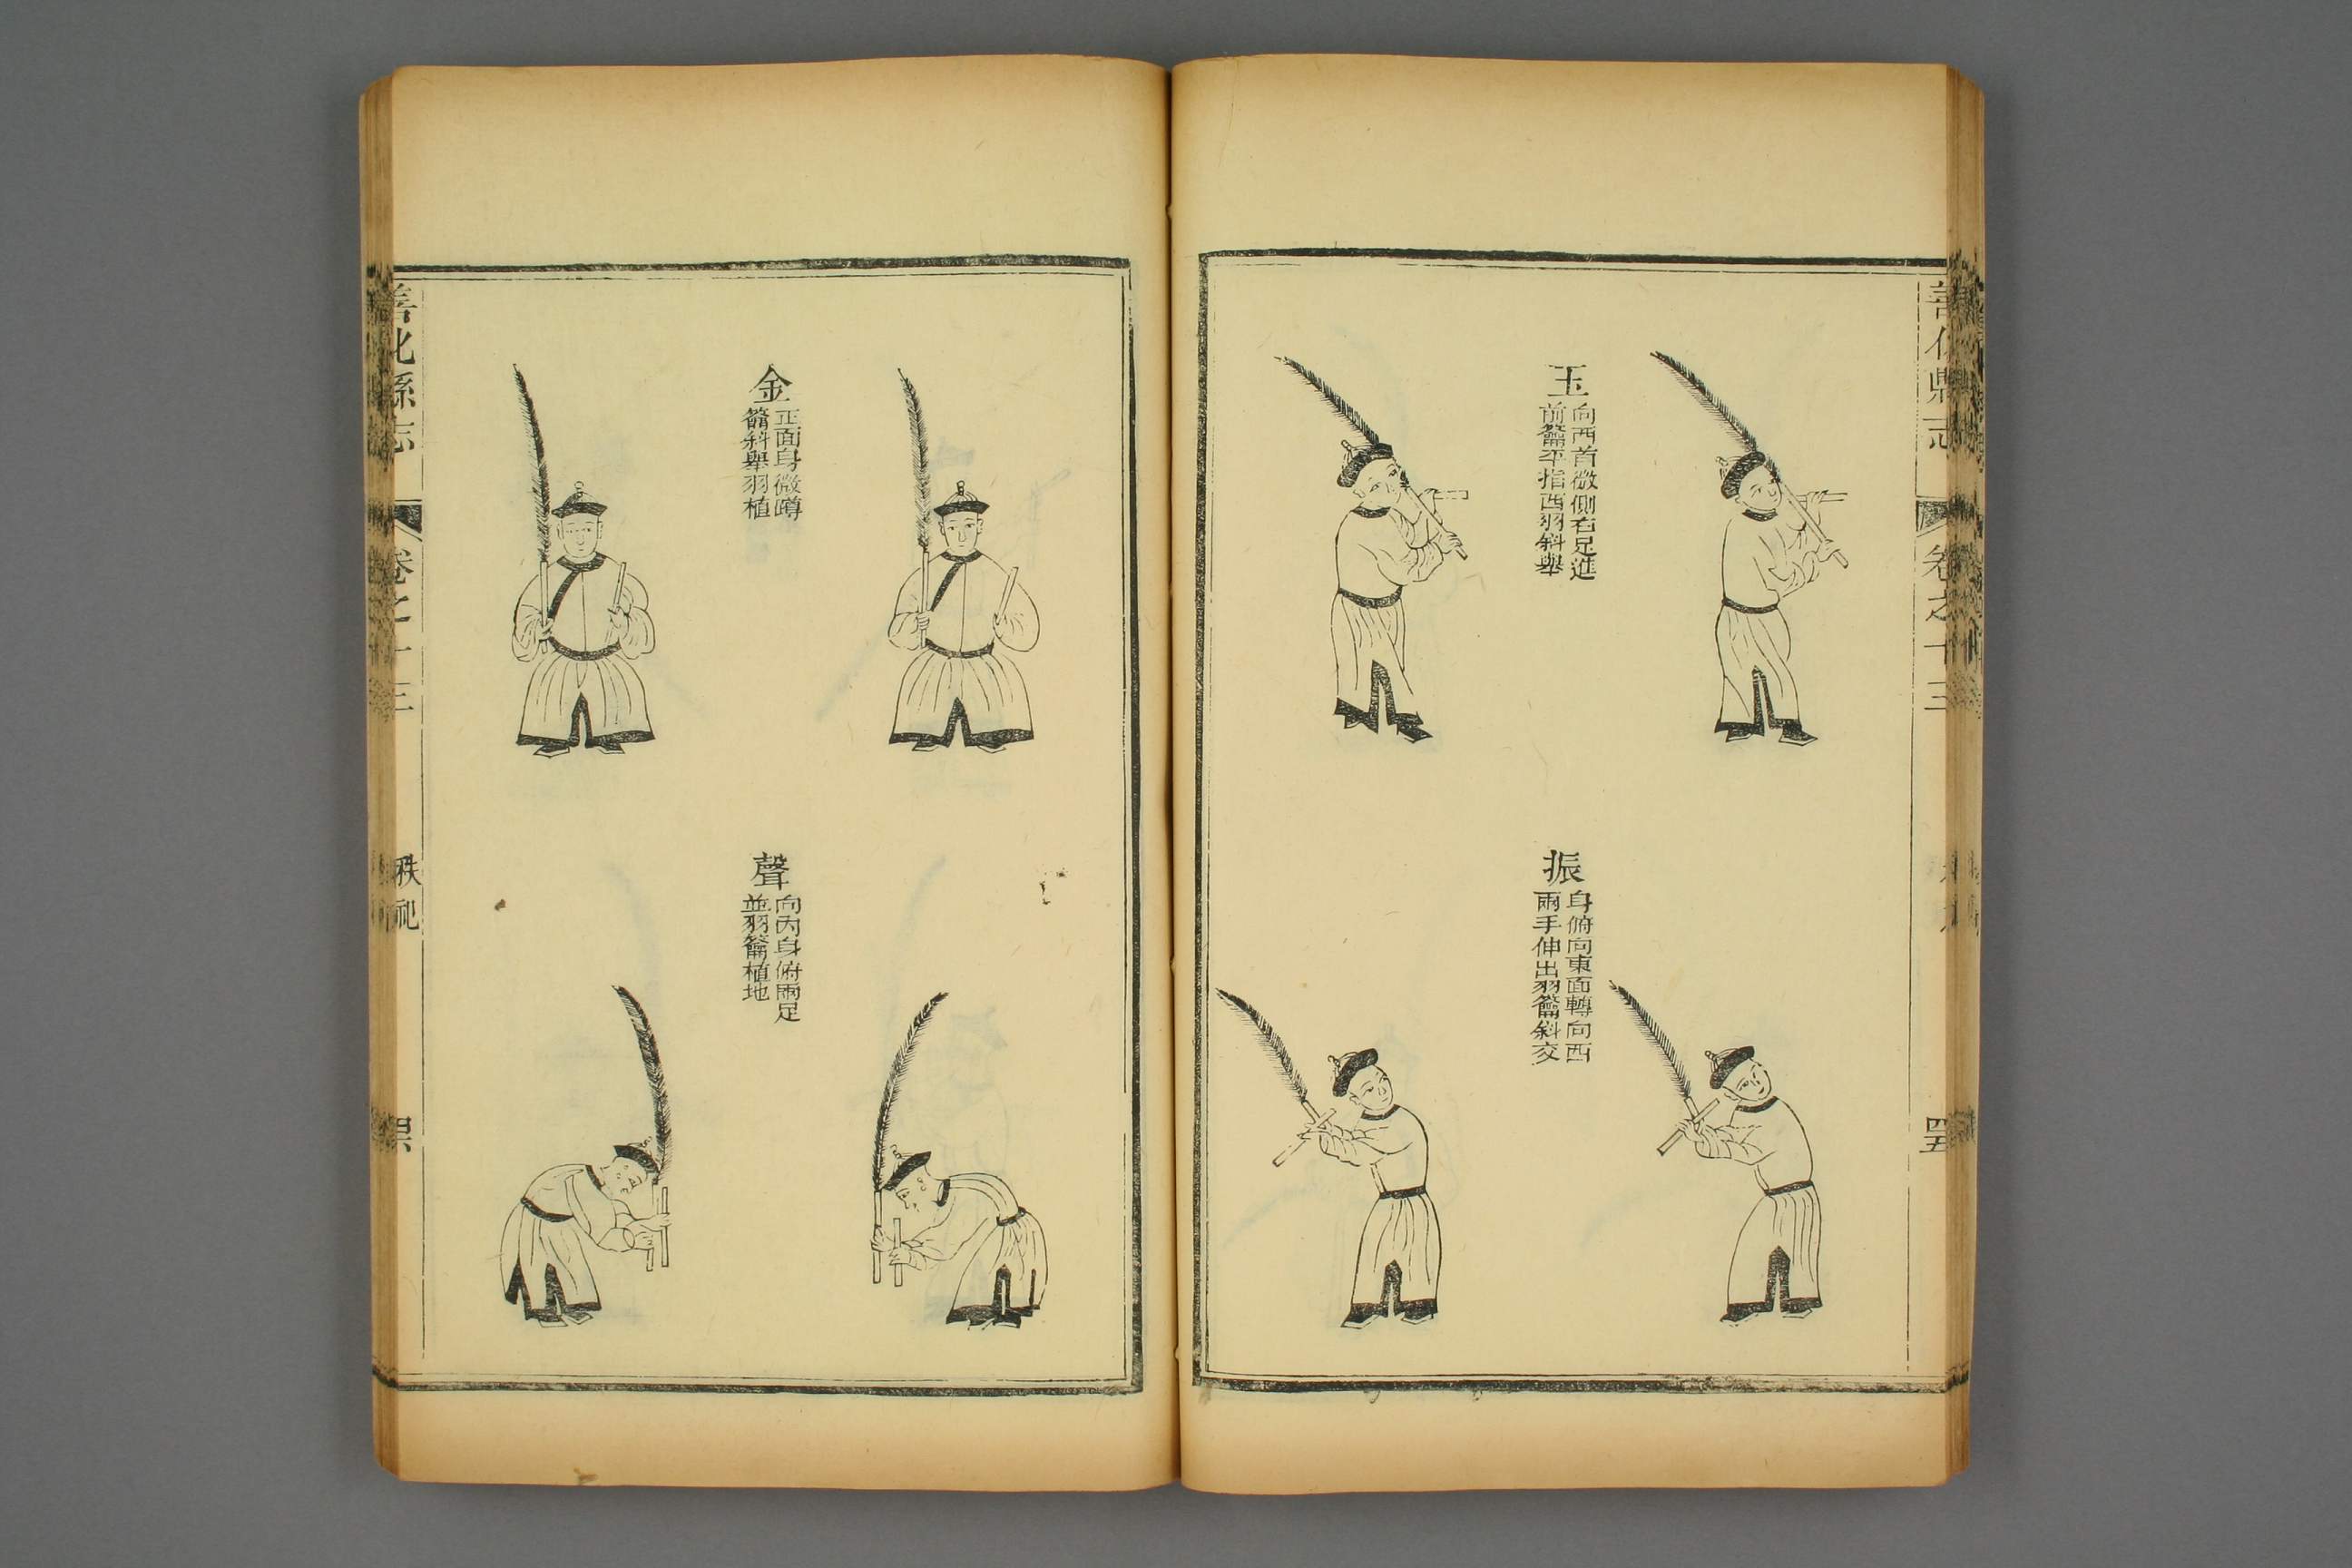 善化縣志
卷之十三
四五
玉
向西首微側右足進
前籥平指西羽斜舉
振
身俯向東面轉向西
兩手伸出羽籥斜交
金
正面身微蹲
籥斜舉羽植
聲
向丙身俯兩足
並羽籥植地
善化縣志
卷之十三
秩祀